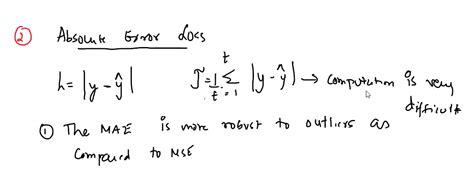 ② Absolute Error Loss
L = |y - ŷ|    J = 1/t Σ_{i=1}^{t} |y - ŷ| → Computation is very difficult
① The MAE is more robust to outliers as
Compared to MSE